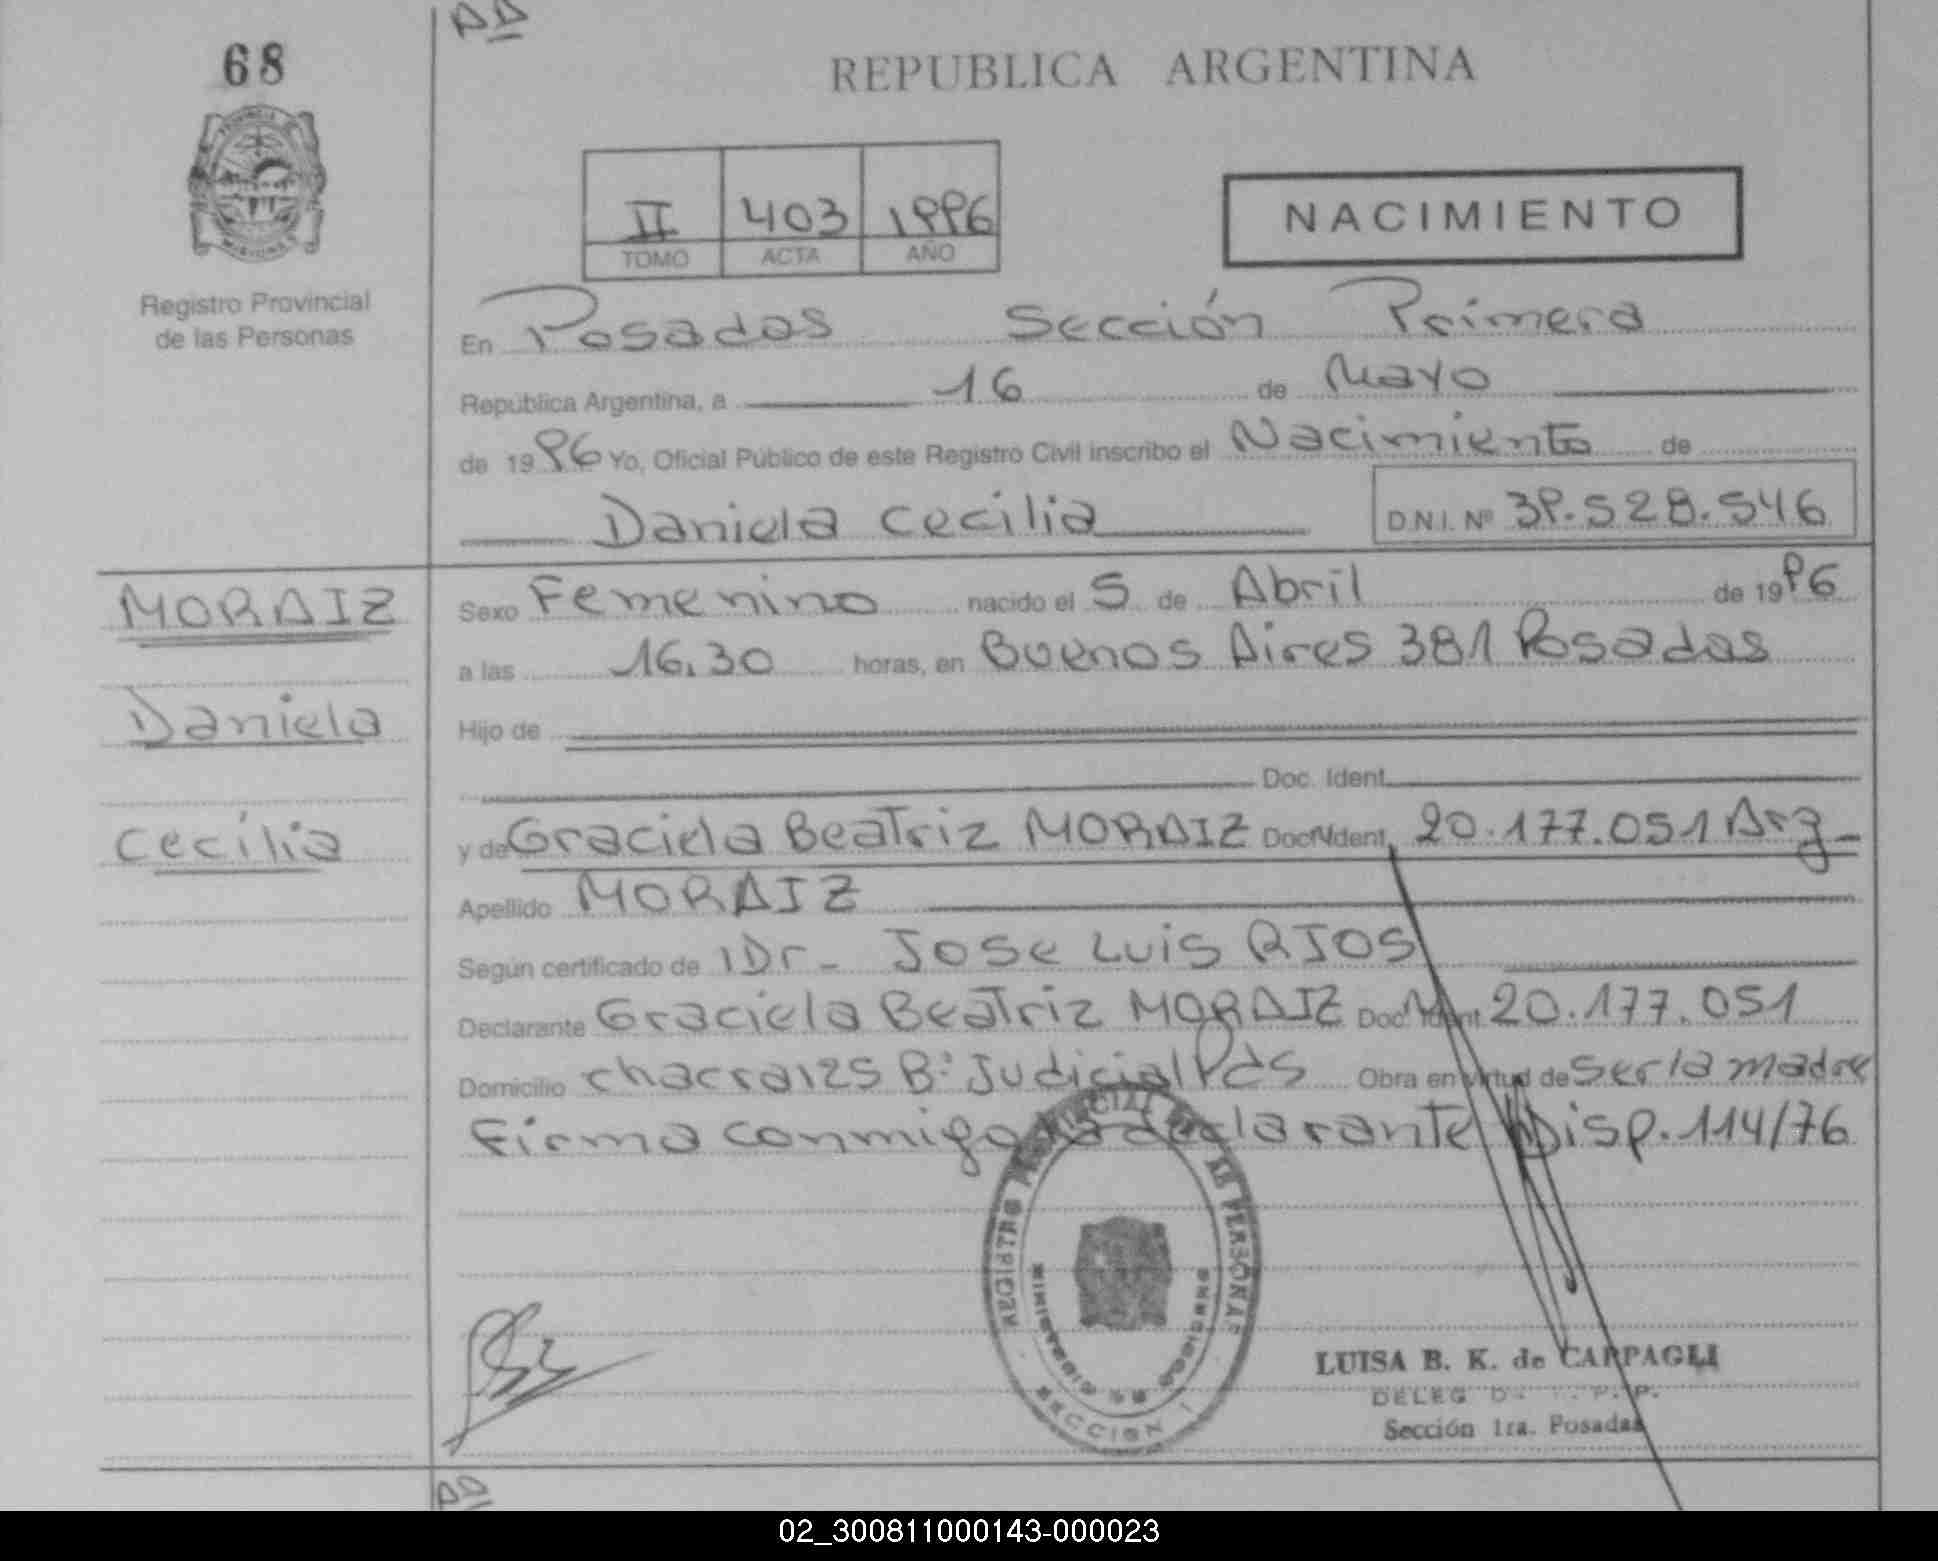 68
REPUBLICA ARGENTINA
II 403 1996
TOMO ACTA AÑO
NACIMIENTO
Registro Provincial
de las Personas
En Posadas Sección Primera
República Argentina, a 16 de Mayo
de 1996 Yo, Oficial Público de este Registro Civil inscribo el Nacimiento de
Daniela Cecilia D.N.I. Nº 39.528.546
MORAIZ
Daniela
Cecilia
Sexo Femenino nacido el 5 de Abril de 1996
a las 16.30 horas, en Buenos Aires 381 Posadas
Hijo de
Doc. Ident.
y de Graciela Beatriz MORAIZ Doc. Ident. 20.177.051 Arg
Apellido MORAIZ
Según certificado de Dr- Jose Luis RIOS
Declarante Graciela Beatriz MORAIZ Doc. Ident 20.177.051
Domicilio chacra 125 Bº Judicial Pds Obra en virtud de ser la madre
Firma conmigo la declarante Disp. 114/76
REGISTRO PROVINCIAL DE LAS PERSONAS
MINISTERIO DE GOBIERNO
SECCION 1
LUISA B. K. de CARPAGLI
DELEG
Sección 1ra. Posadas
02_300811000143-000023